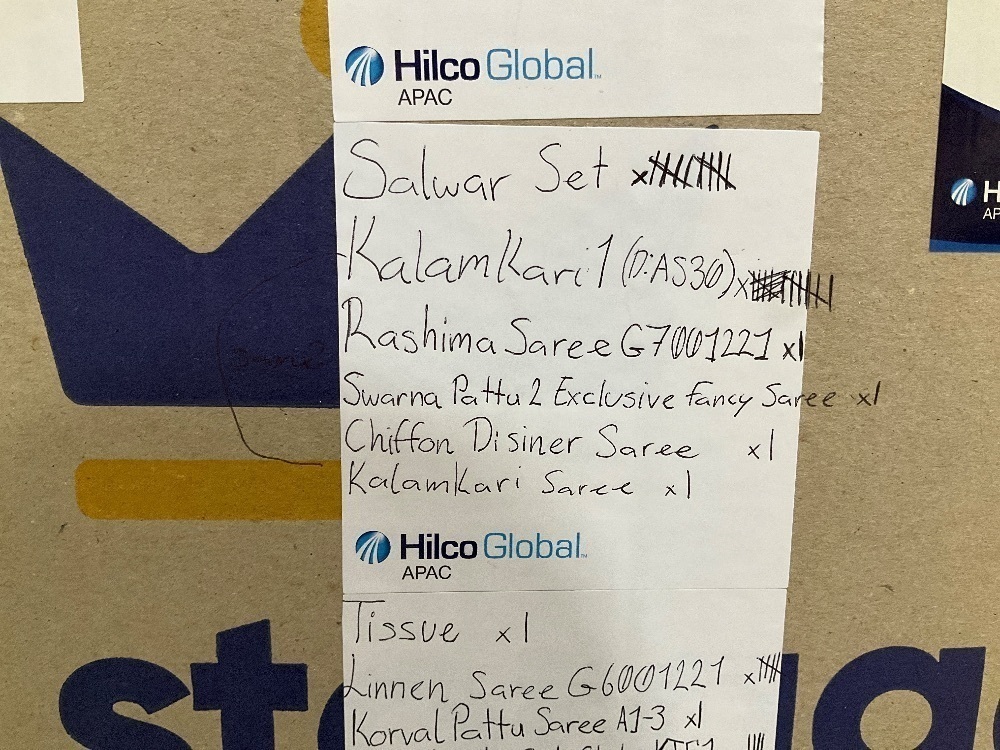 Hilco Global
APAC
Salwar Set x
Kalamkari 1 (D:AS30) x
Rashima Saree G7001221 x1
Swarna Pattu 2 Exclusive fancy Saree x1
Chiffon Disiner Saree x1
Kalamkari Saree x1
Hilco Global
APAC
Tissue x1
Linnen Saree G6001221 x
Korval Pattu Saree A1-3 x1
H
AP